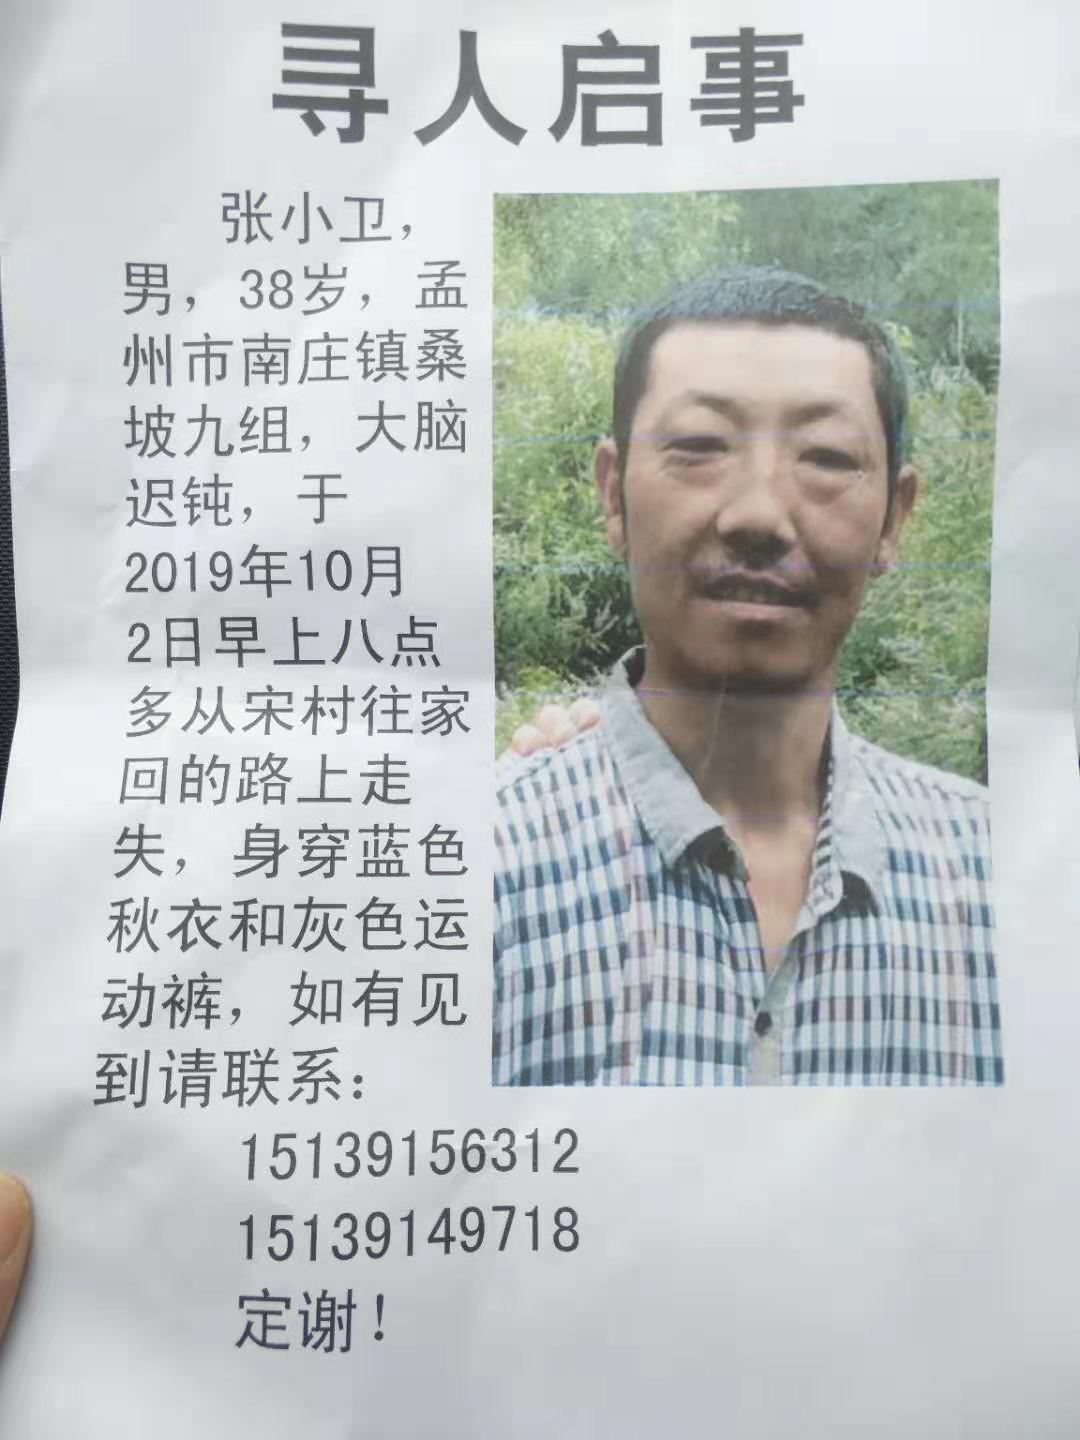 寻人启事
张小卫，
男，38岁，孟
州市南庄镇桑
坡九组，大脑
迟钝，于
2019年10月
2日早上八点
多从宋村往家
回的路上走
失，身穿蓝色
秋衣和灰色运
动裤，如有见
到请联系：
15139156312
15139149718
定谢！